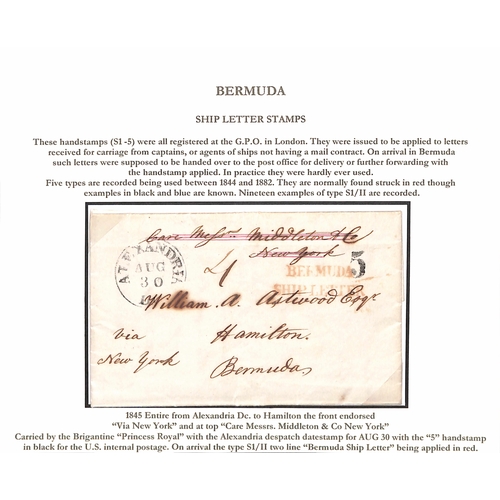 BERMUDA
SHIP LETTER STAMPS
These handstamps (S1 -5) were all registered at the G.P.O. in London. They were issued to be applied to letters
received for carriage from captains, or agents of ships not having a mail contract. On arrival in Bermuda
such letters were supposed to be handed over to the post office for delivery or further forwarding with
the handstamp applied. In practice they were hardly ever used.
Five types are recorded being used between 1844 and 1882. They are normally found struck in red though
examples in black and blue are known. Nineteen examples of type S1/II are recorded.
Care Messrs. Middleton & Co
New York
ALEXANDRIA
AUG
30
4
5
BERMUDA
SHIP LETTER
William. A. Astwood Esqr
via Hamilton.
New York Bermudas
1845 Entire from Alexandria Dc. to Hamilton the front endorsed
"Via New York" and at top "Care Messrs. Middleton & Co New York"
Carried by the Brigantine "Princess Royal" with the Alexandria despatch datestamp for AUG 30 with the "5" handstamp
in black for the U.S. internal postage. On arrival the type S1/II two line "Bermuda Ship Letter" being applied in red.